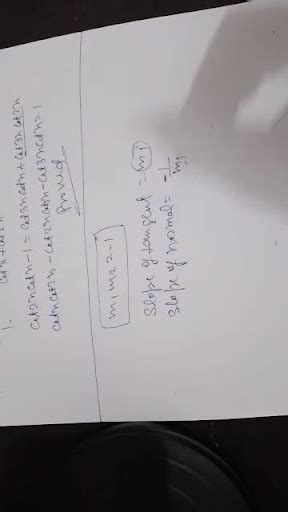 cot2x cotx - 1 = cot3x cotx + cot3x cot2x
cotx cot2x - cot2x cot3x - cot3x cotx = 1
Proved
m₁ m₂ = -1
slope of tangent = m₁
slope of normal = -1/m₁